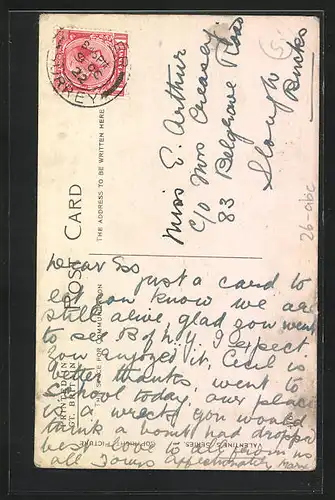 POST CARD
THE ADDRESS TO BE WRITTEN HERE
THE SPACE FOR COMMUNICATION
PRINTED IN
GT. BRITAIN
VALENTINE'S SERIES.
COPYRIGHT PICTURE
Miss E. Arthur
C/o Mrs Creasey
83 Belgrave Place
Slough
Bucks
26-abc
Dear Sis
just a card to
let you know we are
still alive, glad you went
to see B of N.Y. I expect
you enjoyed it, Cecil is
better thanks went to
School today, our place
is a wreck you would
think a bomb had dropped
best love to all from us
all Yours affectionately